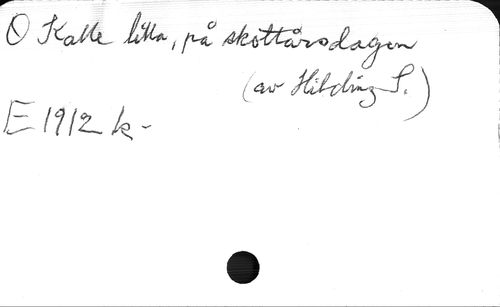 O Kalle lilla, på skottårsdagen
(av Hilding S.)
E 1912 k-